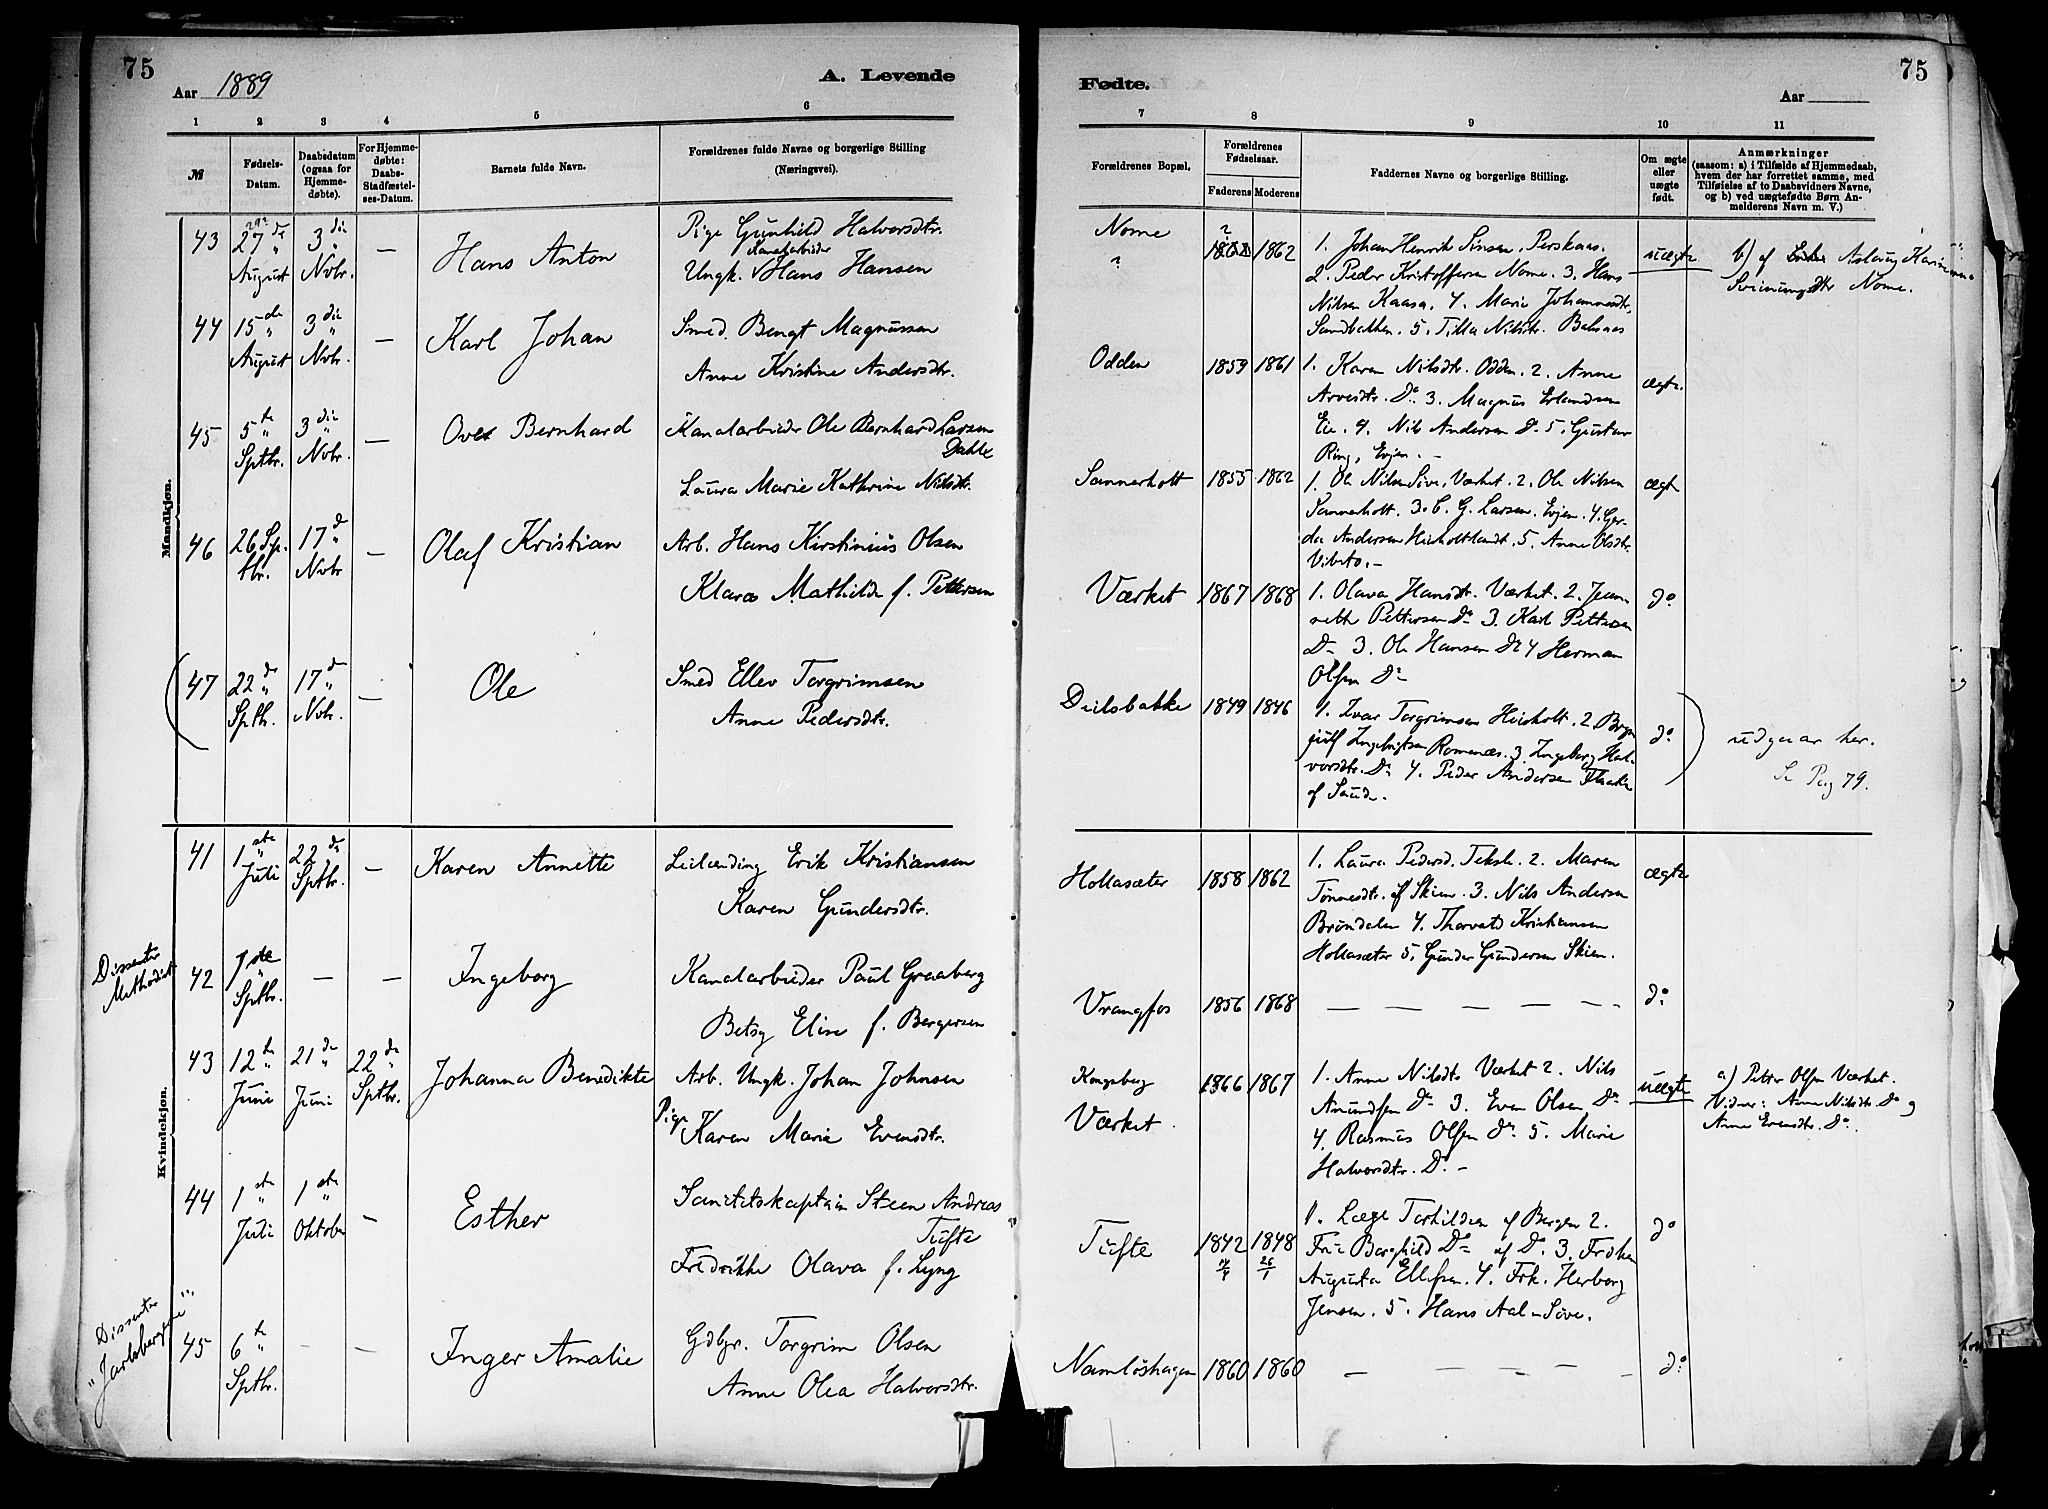 75
Aar 1889
A. Levende
1 2 3 4 5 6
№
Fødsels-
Datum.
Daabsdatum
(ogsaa for
Hjemme-
døbte).
For Hjemme-
døbte:
Daabs-
Stadfæstel-
ses-Datum.
Barnets fulde Navn.
Forældrenes fulde Navne og borgerlige Stilling
(Næringsvei).
Mandkjøn.
43 27de August 3die Novbr. — Hans Anton
Pige Gunhild Halvorsdtr.
Kanalarbeider
Ungk. Hans Hansen
44 15de August 3die Novbr. — Karl Johan
Smed. Bengt Magnussen
Anne Kristine Andersdtr.
45 5te Sptbr. 3die Novbr. — Ove Bernhard
Kanalarbeider Ole Bernhard Larsen
Dahle
Laura Marie Kathrine Nilsdtr.
46 26 Sp.tbr. 17de Novbr — Olaf Kristian
Arb. Hans Kirstinius Olsen
Klara Mathilde f. Pettersen
47 22de Sptbr. 17de Novbr. — Ole
Smed Ellev Torgrimsen
Anne Pedersdtr.
Kvindekjøn.
41 1ste Juli 22de Sptbr. — Karen Annette
Leilænding Erik Kristiansen
Karen Gundersdtr.
Dissenter
Methodist
42 7de Sptbr. — — Ingeborg
Kanalarbeider Paul Graaberg
Betsy Elise f. Bergersen
43 12te Juni 21de Juni 22de Sptbr. Johanna Benedikte
Arb. Ungk. Johan Johnsen
Pige Karen Marie Evensdtr.
44 1ste Juli 1ste Oktober — Esther
Sanitetskaptein Steen Andreas
Tufte
Fredrikke Olava f. Lyng
Dissenter
"Jarlsbergene"
45 6te Sptbr. — — Inger Amalie
Gdbgr. Torgrim Olsen
Anne Olea Halvorsdtr.
Fødte.
75
Aar
7 8 9 10 11
Forældrenes Bopæl.
Forældrenes
Fødselsaar.
Faderens Moderens
Faddernes Navne og borgerlige Stilling.
Om ægte
eller
uægte
født.
Anmærkninger
(saasom: a) i Tilfælde af Hjemmedaab,
hvem der har forrettet samme, med
Tilføielse af to Daabsvidners Navne,
og b) ved uægtefødte Børn An-
melderens Navn m. V.)
Nome
? ? 1862
1. Johan Henrik Sinsen, Perskaas.
2. Peder Kristoffersen Nome. 3. Hans
Nilsen Kaasa. 4. Marie Johannesdtr.
Sandbakken. 5. Tilla Nilsdtr. Balsaas
uægte
b) af Aslaug Karine
Sveinungsdtr Nome.
Odden 1859 1861
1. Karen Nilsdtr. Odden. 2. Anne
Arvesdtr. Do 3. Magnus Erlandsen
Eie. 4. Nils Andersen Do 5. Gustav
Ring, Evjen. —
ægte.
Sannerholt 1855 1862
1. Ole Nilsen Sive, Værket. 2. Ole Nilsen
Sannerholt. 3. C. G. Larsen. Evjen. 4. Ger-
da Andersen Heisholtlandt. 5. Anne Olsdtr.
Vibeto. —
ægte
Værket 1867 1868
1. Olava Hansdtr. Værket. 2. Jean-
neth Pettersen Do 3. Karl Pettersen
Do 3. Ole Hansen Do 4 Herman
Olsen Do
do
Deilsbakke 1849 1846
1. Ivar Torgrimsen Heisholt. 2. Bryn-
julf Ingebrigtsen Romenæs. 3. Ingeborg Hal-
vorsdtr. Do 4. Peder Andersen
af Saude.
do
udgaar her.
Se Pag 79.
Hollasæter 1858 1862
1. Laura Pedersd. Teksle. 2. Maren
Tønnesdtr. af Skien. 3. Nils Andersen
Brøndalen 4. Thorvald Kristiansen
Hollasæter 5. Gunder Gundersen Skien.
ægte
Vrangfos 1856 1868 — — — — — — do
Kongsberg 1866 1867
Værket
1. Anne Nilsdtr Værket 2. Nils
Amundsen Do 3. Even Olsen Do
4. Rasmus Olsen Do 5. Marie
Halvorsdtr. Do. —
uægte
a) Petter Olsen Værket.
Vidner: Anne Nilsdtr. Do og
Anne Evensdtr. Do.
Tufte 1842 1848
26/1
1. Læge Torkildsen af Bergen 2.
Frue Borghild Do af Do. 3. Frøken
Augusta Ellefsen. 4. Frk. Herborg
Jensen. 5. Hans Aal-Søve.
do
Namløshagen 1860 1860 — — — — — do